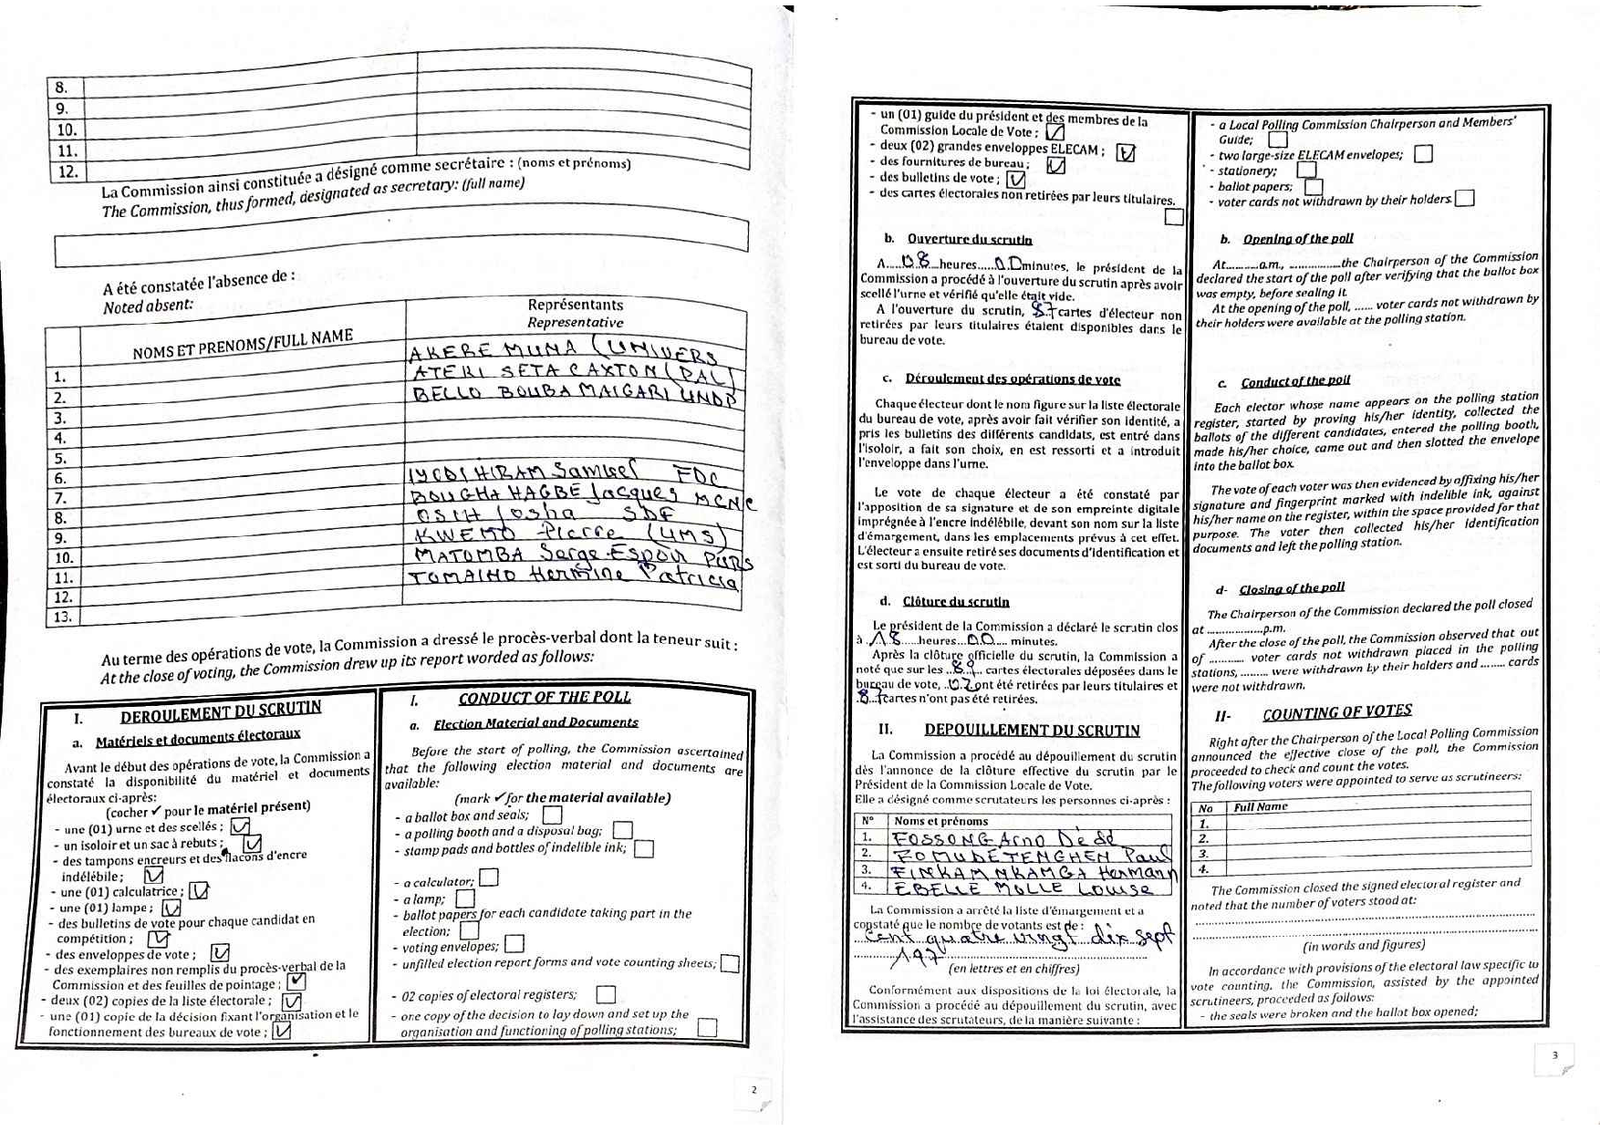 8.
9.
10.
11.
12.
La Commission ainsi constituée a désigné comme secrétaire : (noms et prénoms)
The Commission, thus formed, designated as secretary: (full name)
A été constatée l'absence de :
Noted absent:
NOMS ET PRENOMS/FULL NAME
Représentants
Representative
AKERE MUNA (UNIVERS
1. ATEKI SETA CAXTON (PAL)
2. BELLO BOUBA MAIGARI UNDP
3.
4.
5.
6. IYODI HIRAM Samuel FDC
7. BOUGHA HAGBE Jacques MCNC
8. OSIH Josha SDF
9. KWEMO Pierre (UMS)
10. MATOMBA Serge Espoir PURS
11. TOMAINO Hermine Patricia
12.
13.
Au terme des opérations de vote, la Commission a dressé le procès-verbal dont la teneur suit :
At the close of voting, the Commission drew up its report worded as follows:
I. DEROULEMENT DU SCRUTIN
a. Matériels et documents électoraux
Avant le début des opérations de vote, la Commission a
constaté la disponibilité du matériel et documents
électoraux ci-après:
(cocher ✓ pour le matériel présent)
- une (01) urne et des scellés ;
- un isoloir et un sac à rebuts ;
- des tampons encreurs et des flacons d'encre
indélébile ;
- une (01) calculatrice ;
- une (01) lampe ;
- des bulletins de vote pour chaque candidat en
compétition ;
- des enveloppes de vote ;
- des exemplaires non remplis du procès-verbal de la
Commission et des feuilles de pointage ;
- deux (02) copies de la liste électorale ;
- une (01) copie de la décision fixant l'organisation et le
fonctionnement des bureaux de vote ;
I. CONDUCT OF THE POLL
a. Election Material and Documents
Before the start of polling, the Commission ascertained
that the following election material and documents are
available:
(mark ✓ for the material available)
- a ballot box and seals;
- a polling booth and a disposal bag;
- stamp pads and bottles of indelible ink;
- a calculator;
- a lamp;
- ballot papers for each candidate taking part in the
election;
- voting envelopes;
- unfilled election report forms and vote counting sheets;
- 02 copies of electoral registers;
- one copy of the decision to lay down and set up the
organisation and functioning of polling stations;
2
- un (01) guide du président et des membres de la
Commission Locale de Vote ;
- deux (02) grandes enveloppes ELECAM ;
- des fournitures de bureau ;
- des bulletins de vote ;
- des cartes électorales non retirées par leurs titulaires.
b. Ouverture du scrutin
A 08 heures 00 minutes, le président de la
Commission a procédé à l'ouverture du scrutin après avoir
scellé l'urne et vérifié qu'elle était vide.
A l'ouverture du scrutin, 87 cartes d'électeur non
retirées par leurs titulaires étaient disponibles dans le
bureau de vote.
c. Déroulement des opérations de vote
Chaque électeur dont le nom figure sur la liste électorale
du bureau de vote, après avoir fait vérifier son identité, a
pris les bulletins des différents candidats, est entré dans
l'isoloir, a fait son choix, en est ressorti et a introduit
l'enveloppe dans l'urne.
Le vote de chaque électeur a été constaté par
l'apposition de sa signature et de son empreinte digitale
imprégnée à l'encre indélébile, devant son nom sur la liste
d'émargement, dans les emplacements prévus à cet effet.
L'électeur a ensuite retiré ses documents d'identification et
est sorti du bureau de vote.
d. Clôture du scrutin
Le président de la Commission a déclaré le scrutin clos
à 18 heures 00 minutes.
Après la clôture officielle du scrutin, la Commission a
noté que sur les 89 cartes électorales déposées dans le
bureau de vote, 02 ont été retirées par leurs titulaires et
87 cartes n'ont pas été retirées.
II. DEPOUILLEMENT DU SCRUTIN
La Commission a procédé au dépouillement du scrutin
dès l'annonce de la clôture effective du scrutin par le
Président de la Commission Locale de Vote.
Elle a désigné comme scrutateurs les personnes ci-après :
N° Noms et prénoms
1. FOSSONG Arno Dedd
2. FOMUDETENGHEN Paul
3. FINKAM NKAMGA Hermann
4. EBELLE MOLLE Louise
La Commission a arrêté la liste d'émargement et a
constaté que le nombre de votants est de :
Cent quatre vingt dix sept
197
(en lettres et en chiffres)
Conformément aux dispositions de la loi électorale, la
Commission a procédé au dépouillement du scrutin, avec
l'assistance des scrutateurs, de la manière suivante :
- a Local Polling Commission Chairperson and Members'
Guide;
- two large-size ELECAM envelopes;
- stationery;
- ballot papers;
- voter cards not withdrawn by their holders
b. Opening of the poll
At..........a.m., ................the Chairperson of the Commission
declared the start of the poll after verifying that the ballot box
was empty, before sealing it.
At the opening of the poll, ...... voter cards not withdrawn by
their holders were available at the polling station.
c. Conduct of the poll
Each elector whose name appears on the polling station
register, started by proving his/her identity, collected the
ballots of the different candidates, entered the polling booth,
made his/her choice, came out and then slotted the envelope
into the ballot box.
The vote of each voter was then evidenced by affixing his/her
signature and fingerprint marked with indelible ink, against
his/her name on the register, within the space provided for that
purpose. The voter then collected his/her identification
documents and left the polling station.
d- Closing of the poll
The Chairperson of the Commission declared the poll closed
at ..................p.m.
After the close of the poll, the Commission observed that out
of ............ voter cards not withdrawn placed in the polling
stations, ......... were withdrawn by their holders and ........ cards
were not withdrawn.
II- COUNTING OF VOTES
Right after the Chairperson of the Local Polling Commission
announced the effective close of the poll, the Commission
proceeded to check and count the votes.
The following voters were appointed to serve as scrutineers:
No Full Name
1.
2.
3.
4.
The Commission closed the signed electoral register and
noted that the number of voters stood at:
(in words and figures)
In accordance with provisions of the electoral law specific to
vote counting, the Commission, assisted by the appointed
scrutineers, proceeded as follows:
- the seals were broken and the ballot box opened;
3